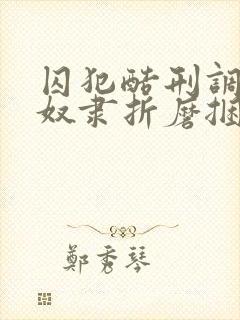 囚犯酷刑調
奴隶折磨捆
鄭秀琴